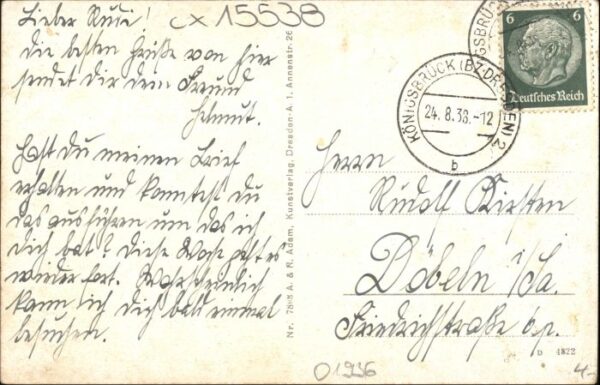 Lieber Rudi!
cx 15538
Die besten Grüße von hier
sendet dir dein Freund
Helmut.
Hast du meinen Brief
erhalten und konntest du
das ausführen um das ich
Dich bat? Diese Woche geht es
wieder fort. Wahrscheinlich
kann ich Dich bald einmal
besuchen.
Nr. A. & R. Adam, Kunstverlag, Dresden-A. 1, Annenstr. 26
KÖNIGSBRÜCK (BZ. DRESDEN) 2
24.8.36.-12
b
6 6
Deutsches Reich
Herrn
Rudolf Kirsten
Döbeln i/Sa.
Friedrichstraße 6 p.
D 4822
01936
4,-